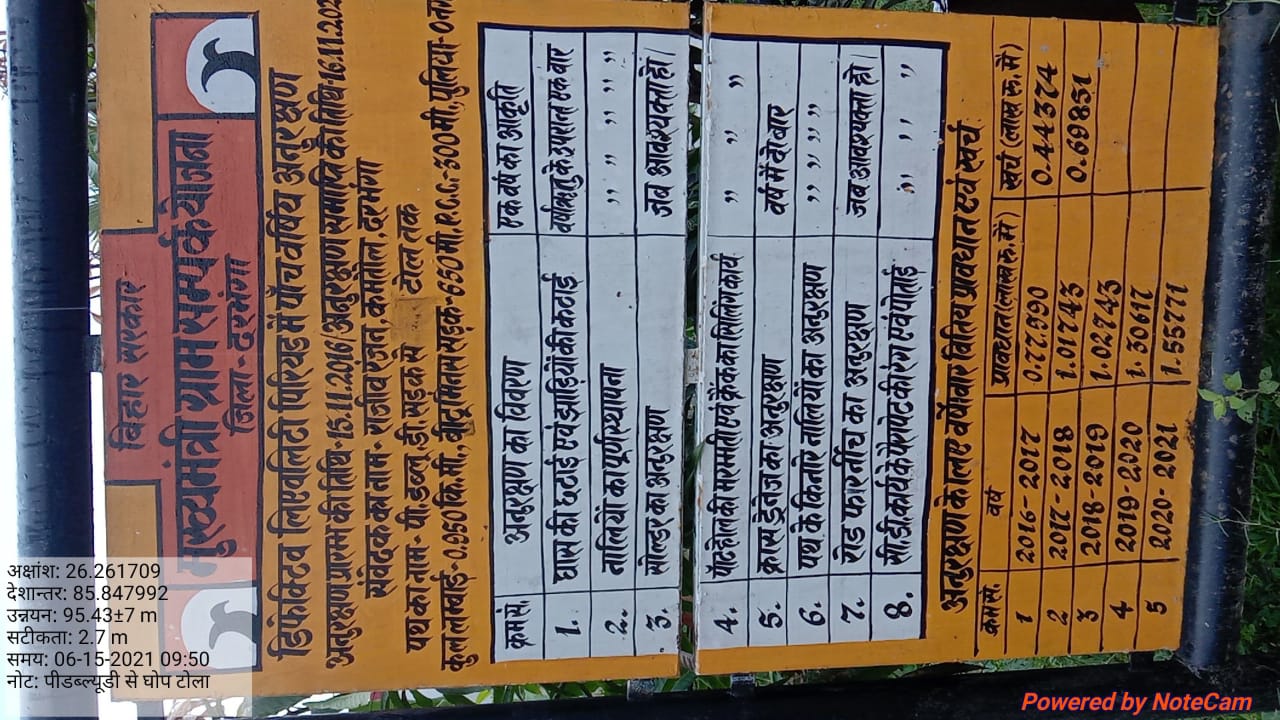 बिहार सरकार
मुख्यमंत्री ग्राम सम्पर्क योजना
जिला - दरभंगा
डिफेक्टिव लाएवलिटी पिरियड में पाँच वर्षिय अनुरक्षण
अनुरक्षण प्रारम्भ की तिथि-15.11.2016 अनुरक्षण समाप्ति की तिथि-16.11.202
संवेदक का नाम- राजीव रंजन, कमतौल, दरभंगा
पथ का नाम- पी.डब्लू.डी. सड़क से टोल तक
कुल लम्बाई- 0.950 कि.मी., बीटूमिनस सड़क-650 मी. P.C.C-300 मी., पुलिया-0
क्रम सं. अनुरक्षण का विवरण एक वर्ष का आकृति
1. घास की छटाई एवं झाड़ियों की कटाई वर्षाऋतु के उपरान्त एक बार
2. नालियों का पूर्णस्थापना ,, ,, ,, ,, ,,
3. सोल्डर का अनुरक्षण जब आवश्यक्ता हो।
4. पॉटहोल की मरम्मती एवं क्रैक का सिलिंग कार्य ,, ,, ,,
5. क्रास ड्रेनेज का अनुरक्षण वर्ष में दो बार
6. पथ के किनारे नालियों का अनुरक्षण ,, ,, ,, ,,
7. रोड फारनीच का अनुरक्षण जब आवश्यक्ता हो।
8. सी.डी. कार्य के पैरापेट की रंग एवं पोताई ,, ,, ,,
अनुरक्षण के लिए वर्षवार वितिय प्रावधान एवं खर्च
क्रम सं. वर्ष प्रावधान (लाख रू. में) खर्च (लाख रू. में)
1 2016-2017 0.77590 0.44374
2 2017-2018 1.01743 0.69851
3 2018-2019 1.02743
4 2019-2020 1.30617
5 2020-2021 1.55771
अक्षांश: 26.261709
देशान्तर: 85.847992
उन्नयन: 95.43±7 m
सटीकता: 2.7 m
समय: 06-15-2021 09:50
नोट: पीडब्ल्यूडी से घोप टोला
Powered by NoteCam